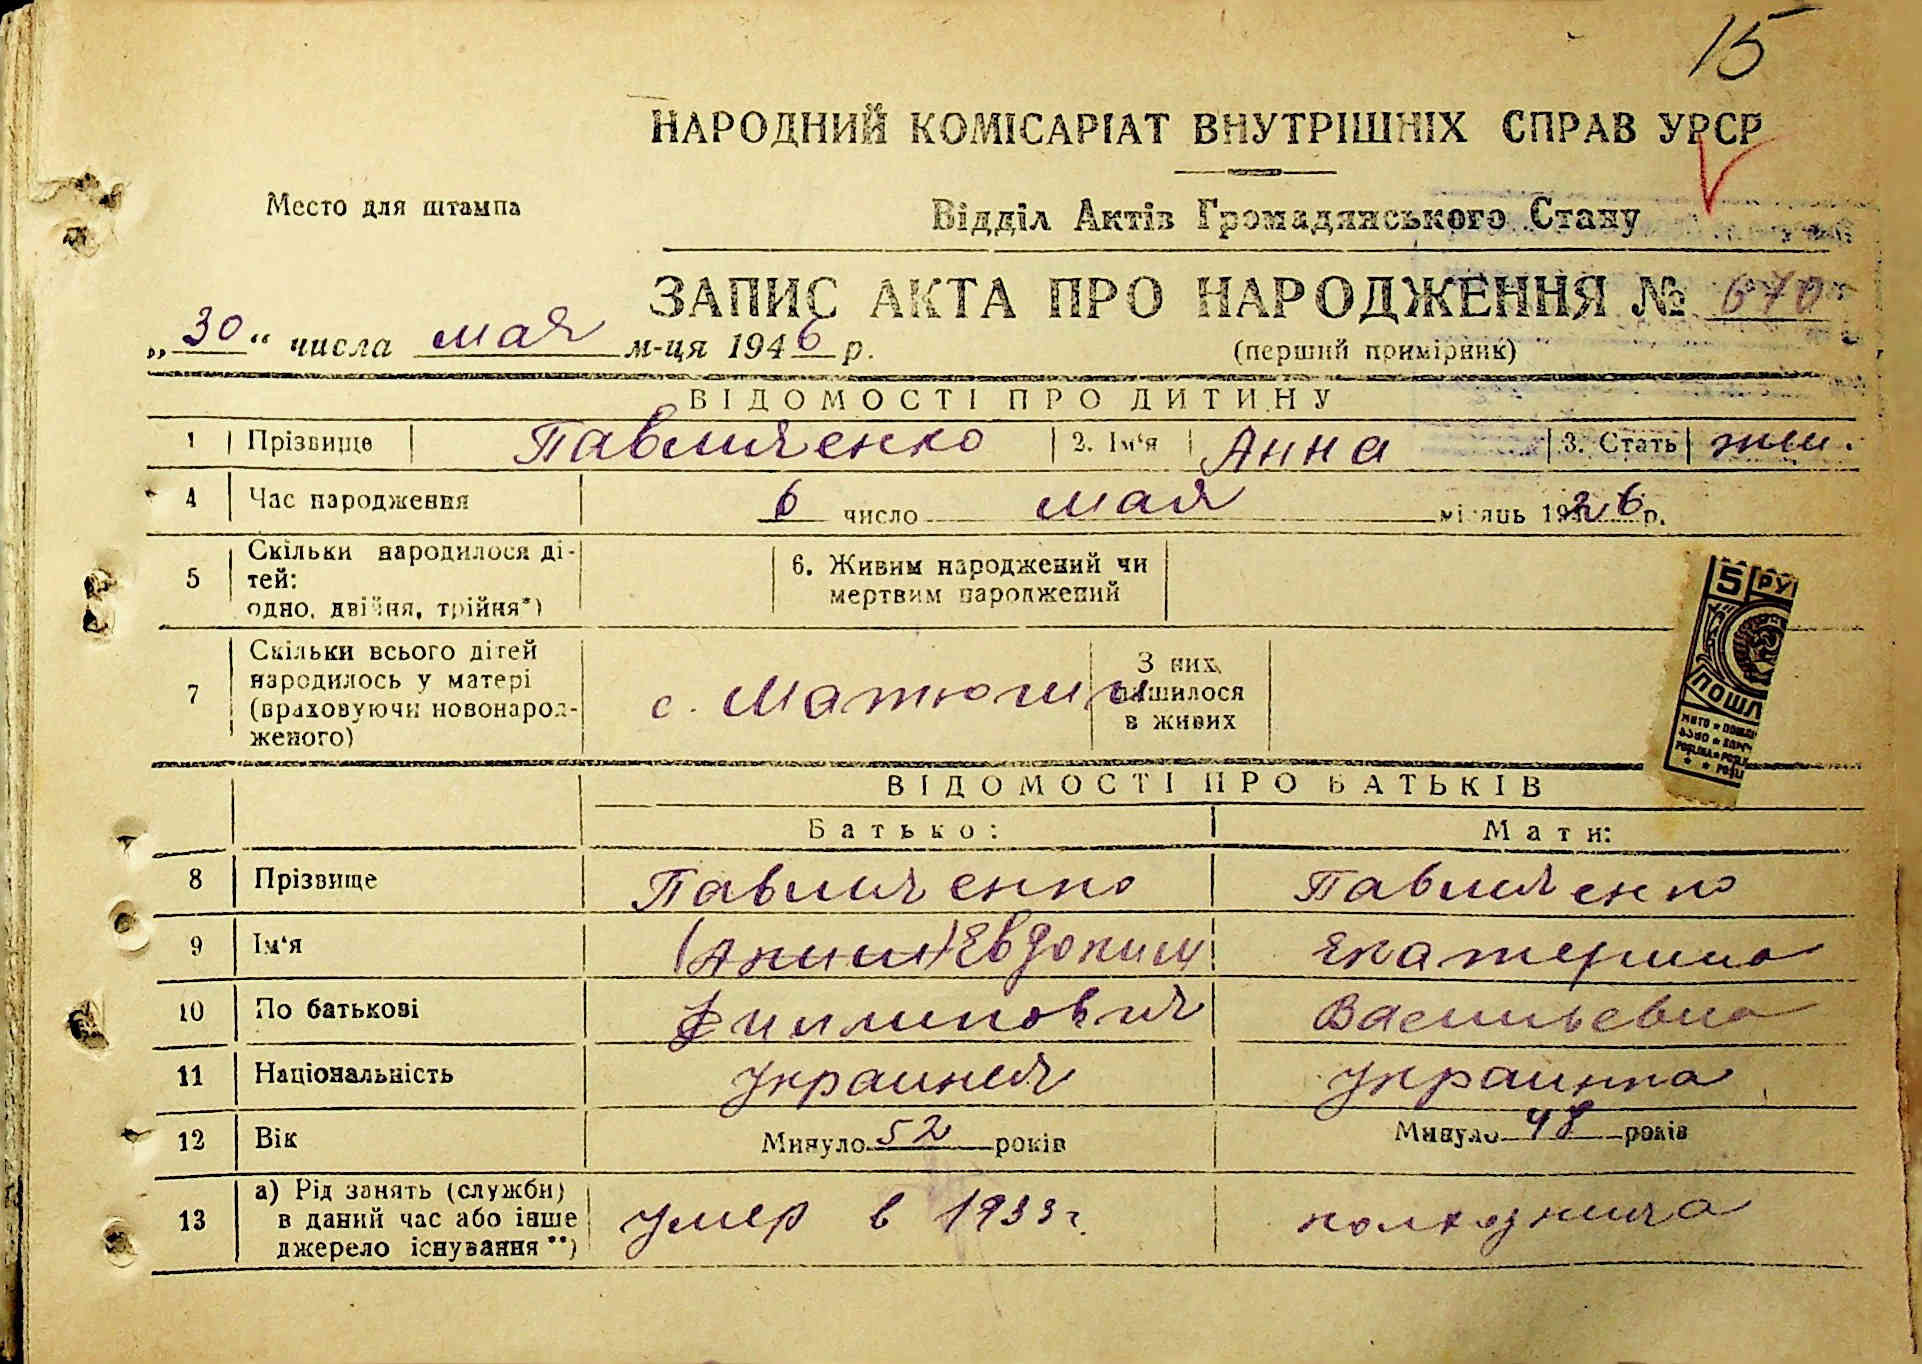 15
НАРОДНИЙ КОМІСАРІАТ ВНУТРІШНІХ СПРАВ УРСР
Место для штампа
Відділ Актів Громадянського Стану
ЗАПИС АКТА ПРО НАРОДЖЕННЯ № 670
„30“ числа мая м-ця 1946 р.
(перший примірник)
ВІДОМОСТІ ПРО ДИТИНУ
1 Прізвище Павличенко 2. Ім‘я Анна 3. Стать жен.
4 Час народження 6 число мая місяць 1926 р.
5 Скільки народилося ді-
тей:
одно, двійня, трійня*)
6. Живим народжений чи
мертвим народжений
7 Скільки всього дітей
народилось у матері
(враховуючи новонарод-
женого)
с. Матюши
З них
лишилося
в живих
5 РУ
ПОШЛ
ВІДОМОСТІ ПРО БАТЬКІВ
Батько: Мати:
8 Прізвище Павличенко Павличенко
9 Ім‘я (Аким) Евдоким Екатерина
10 По батькові Филипович Васильевна
11 Національність Украинец Украинка
12 Вік Минуло 52 років Минуло 48 років
13 а) Рід занять (служби)
в даний час або інше
джерело існування **)
умер в 1933 г. колхозница